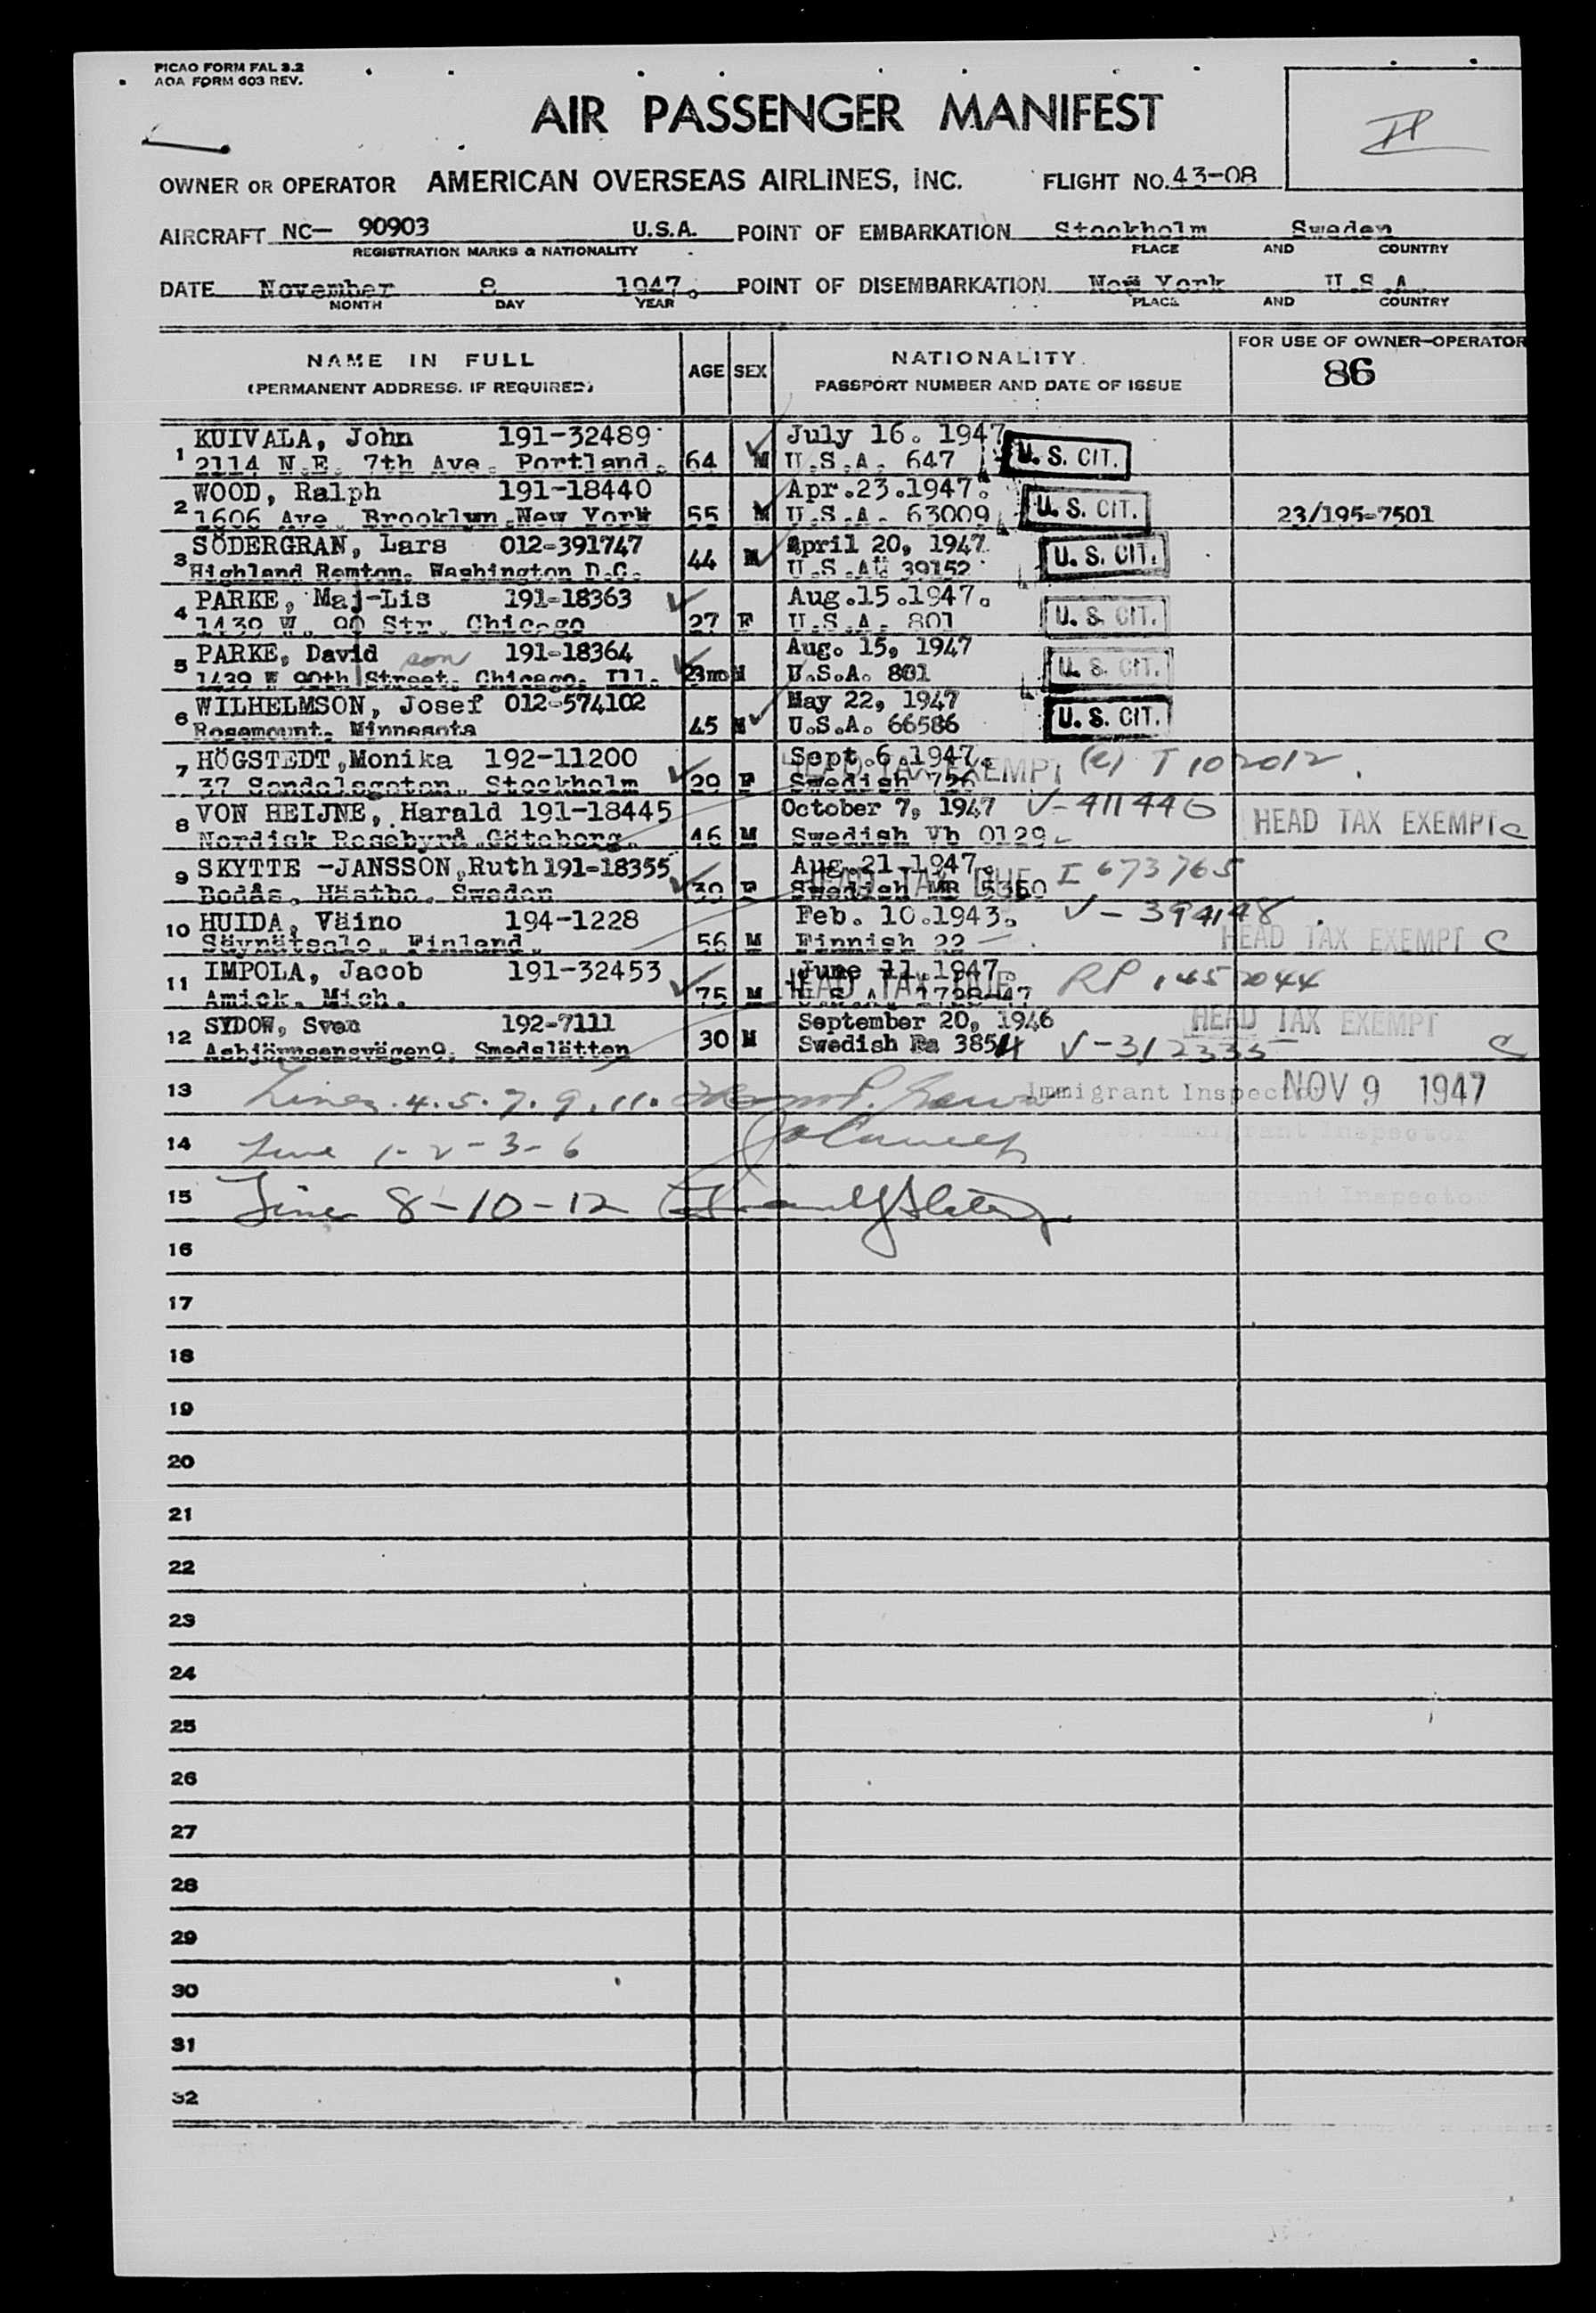 PICAO FORM FAL 3.2
AOA FORM 603 REV.
AIR PASSENGER MANIFEST
II
OWNER OR OPERATOR AMERICAN OVERSEAS AIRLINES, INC. FLIGHT NO. 43-08
AIRCRAFT NC— 90903 U.S.A. POINT OF EMBARKATION Stockholm Sweden
REGISTRATION MARKS & NATIONALITY PLACE AND COUNTRY
DATE November 8 1947. POINT OF DISEMBARKATION New York U.S.A.
MONTH DAY YEAR PLACE AND COUNTRY
NAME IN FULL
(PERMANENT ADDRESS. IF REQUIRED)
AGE SEX
NATIONALITY
PASSPORT NUMBER AND DATE OF ISSUE
FOR USE OF OWNER-OPERATOR
86
1 KUIVALA, John 191-32489 July 16. 1947
2114 N.E. 7th Ave. Portland. 64 M U.S.A. 647 U. S. CIT.
2 WOOD, Ralph 191-18440 Apr.23.1947.
1606 Ave. Brooklyn New York 55 M U.S.A. 63009 U. S. CIT. 23/195-7501
3 SÖDERGRAN, Lars 012-391747 April 20, 1947
Highland Remton. Washington D.C. 44 M U.S.A. 39152 U. S. CIT.
4 PARKE, Maj-Lis 191-18363 Aug.15.1947.
1439 W. 90 Str. Chicago 27 F U.S.A. 801 U. S. CIT.
5 PARKE, David son 191-18364 Aug. 15, 1947
1439 W 90th Street. Chicago. Ill. 23mo M U.S.A. 801 U. S. CIT.
6 WILHELMSON, Josef 012-574102 May 22, 1947
Rosemount. Minnesota 45 M U.S.A. 66586 U. S. CIT.
7 HÖGSTEDT, Monika 192-11200 Sept.6.1947. HEAD TAX EXEMPT (e) T 102012
37 Stockholm 29 F Swedish 726
8 VON HEIJNE, Harald 191-18445 October 7, 1947 V-411440 HEAD TAX EXEMPT C
Nordisk Resebyrå Göteborg. 46 M Swedish Vb 0129
9 SKYTTE -JANSSON, Ruth 191-18355 Aug.21-1947. HEAD TAX DUE I 673765
Bodås, Hästbo. Sweden 39 F Swedish MB 5360
10 HUIDA, Väino 194-1228 Feb. 10.1943. V-394148
Säynätsalo, Finland. 56 M Finnish 22 HEAD TAX EXEMPT C
11 IMPOLA, Jacob 191-32453 June 11.1947 HEAD TAX DUE RP 1452044
Mich. 75 M
12 SYDOW, Sven 192-7111 September 20, 1946 HEAD TAX EXEMPT
Asbjörnsensvägen9. Smedslätten 30 M Swedish Ra 3854 V-312335 C
13 Lines. 4. 5. 7. 9. 11. Immigrant Inspector NOV 9 1947
14 Line 1-2-3-6 U.S. Immigrant Inspector
15 Line 8-10-12 Immigrant Inspector
16
17
18
19
20
21
22
23
24
25
26
27
28
29
30
31
32